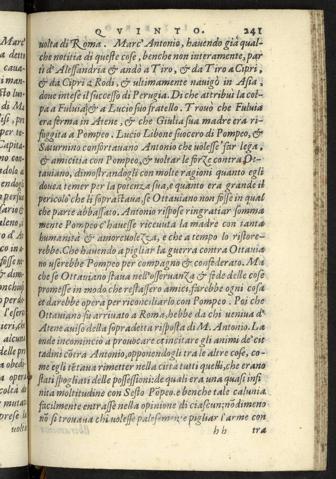 QVINTO. 241
uolta di Roma. Marc' Antonio, hauendo già qual-
che notitia di queste cose, benche non interamente, par
tì d'Alessandria & andò a Tiro, & da Tiro a Cipri,
& da Cipri a Rodi, & ultimamente nauigò in Asia,
doue intese il successo di Perugia. Di che attribuì la col-
pa a Fuluia & a Lucio suo fratello. Trouò che Fuluia
era ferma in Atene, & che Giulia sua madre era ri-
fuggita a Pompeo. Lucio Libone suocero di Pompeo, &
Saturnino confortauano Antonio che uolesse far lega,
& amicitia con Pompeo, & uoltar le forze contra Ot-
tauiano, dimostrandogli con molte ragioni quanto egli
douea temer per la potenza sua, e quanto era grande il
pericolo che li soprastaua, se Ottauiano non fosse in qual
che parte abbassato. Antonio rispose ringratiar somma
mente Pompeo c'hauesse riceuuta la madre con tanta
humanità & amoreuolezza, e che a tempo lo ristore-
rebbe. Che hauendo a pigliar la guerra contra Ottauia
no userebbe Pompeo per compagno & confederato. Ma
che se Ottauiano staua nell'osseruanza & fede delle cose
promesse in modo che restassero amici, farebbe ogni cosa
et darebbe opera per riconciliarlo con Pompeo. Poi che
Ottauiano fu arriuato a Roma, hebbe da chi ueniua d'
Atene auiso della sopradetta risposta di M. Antonio. La
onde incominciò a prouocare et incitare gli animi de' cit
tadini cōtra Antonio, opponendogli tra le altre cose, co-
me egli tētaua rimetter nella città tutti quelli, che erano
stati spogliati delle possessioni: de quali era una quasi infi
nita moltitudine con Sesto Pōpeo. e benche tale calunia
facilmente entrasse nella opinione di ciascun: nō dimeno
nō si trouaua chi uolesse palesemente pigliar l'arme con
hh tra